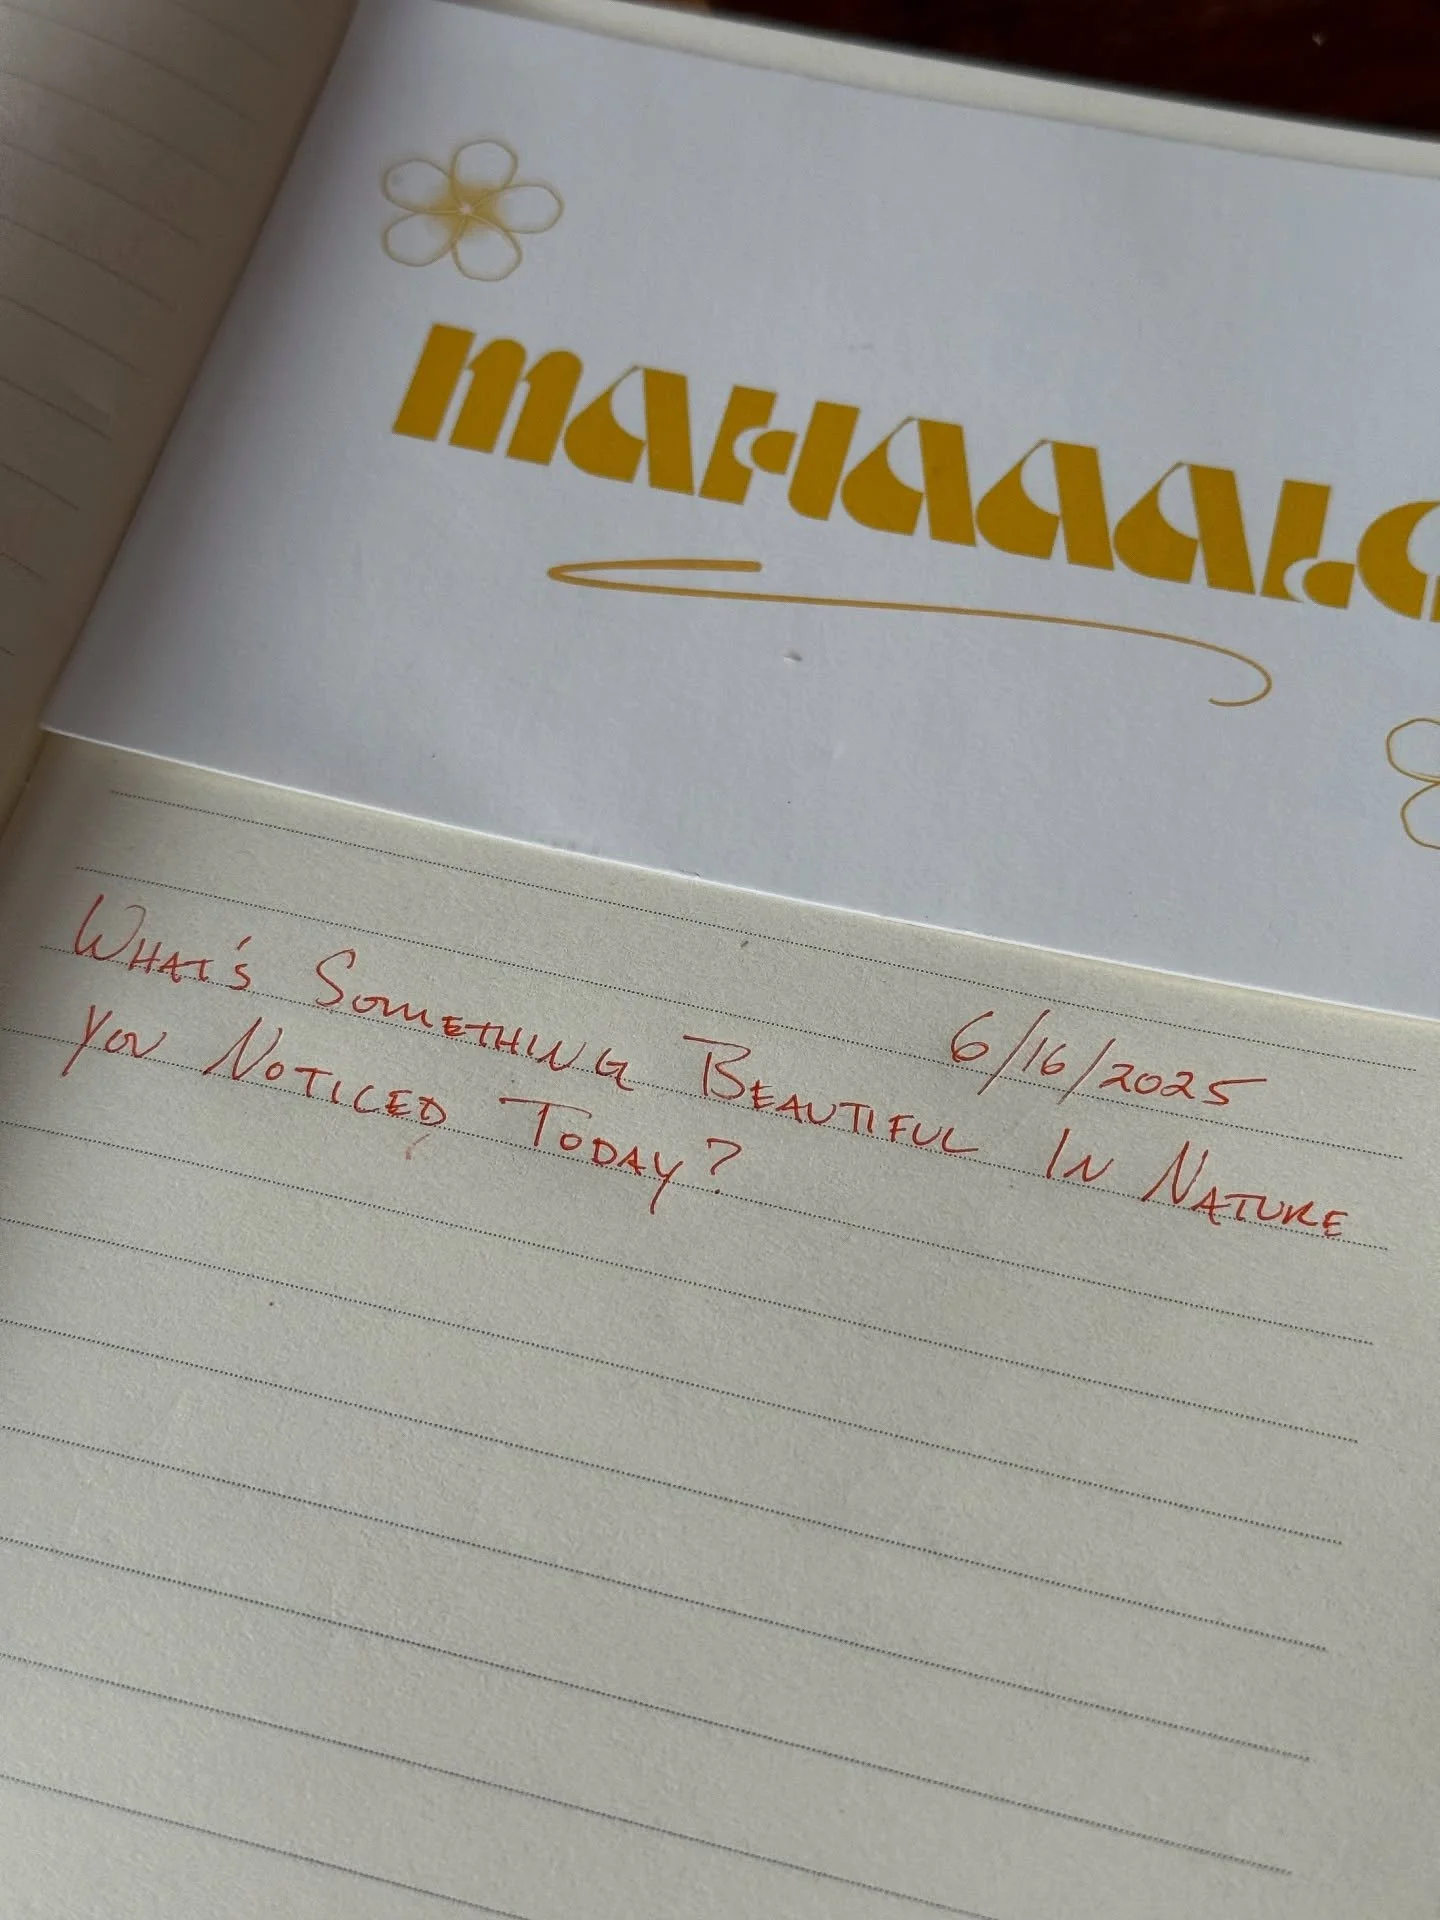 MAHAAALO
6/16/2025
WHAT'S SOMETHING BEAUTIFUL IN NATURE
YOU NOTICED TODAY?